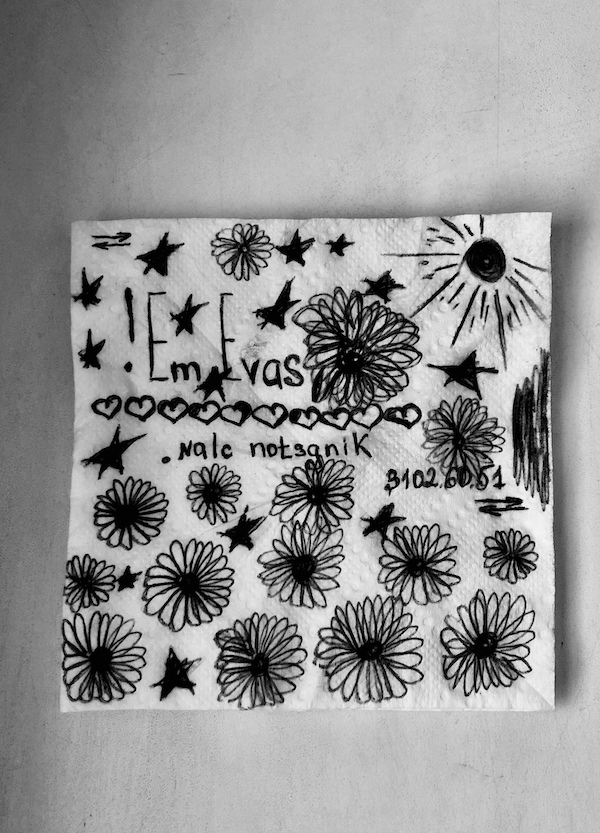 !Em Evas
.Nalc notsanik
3102.60.51